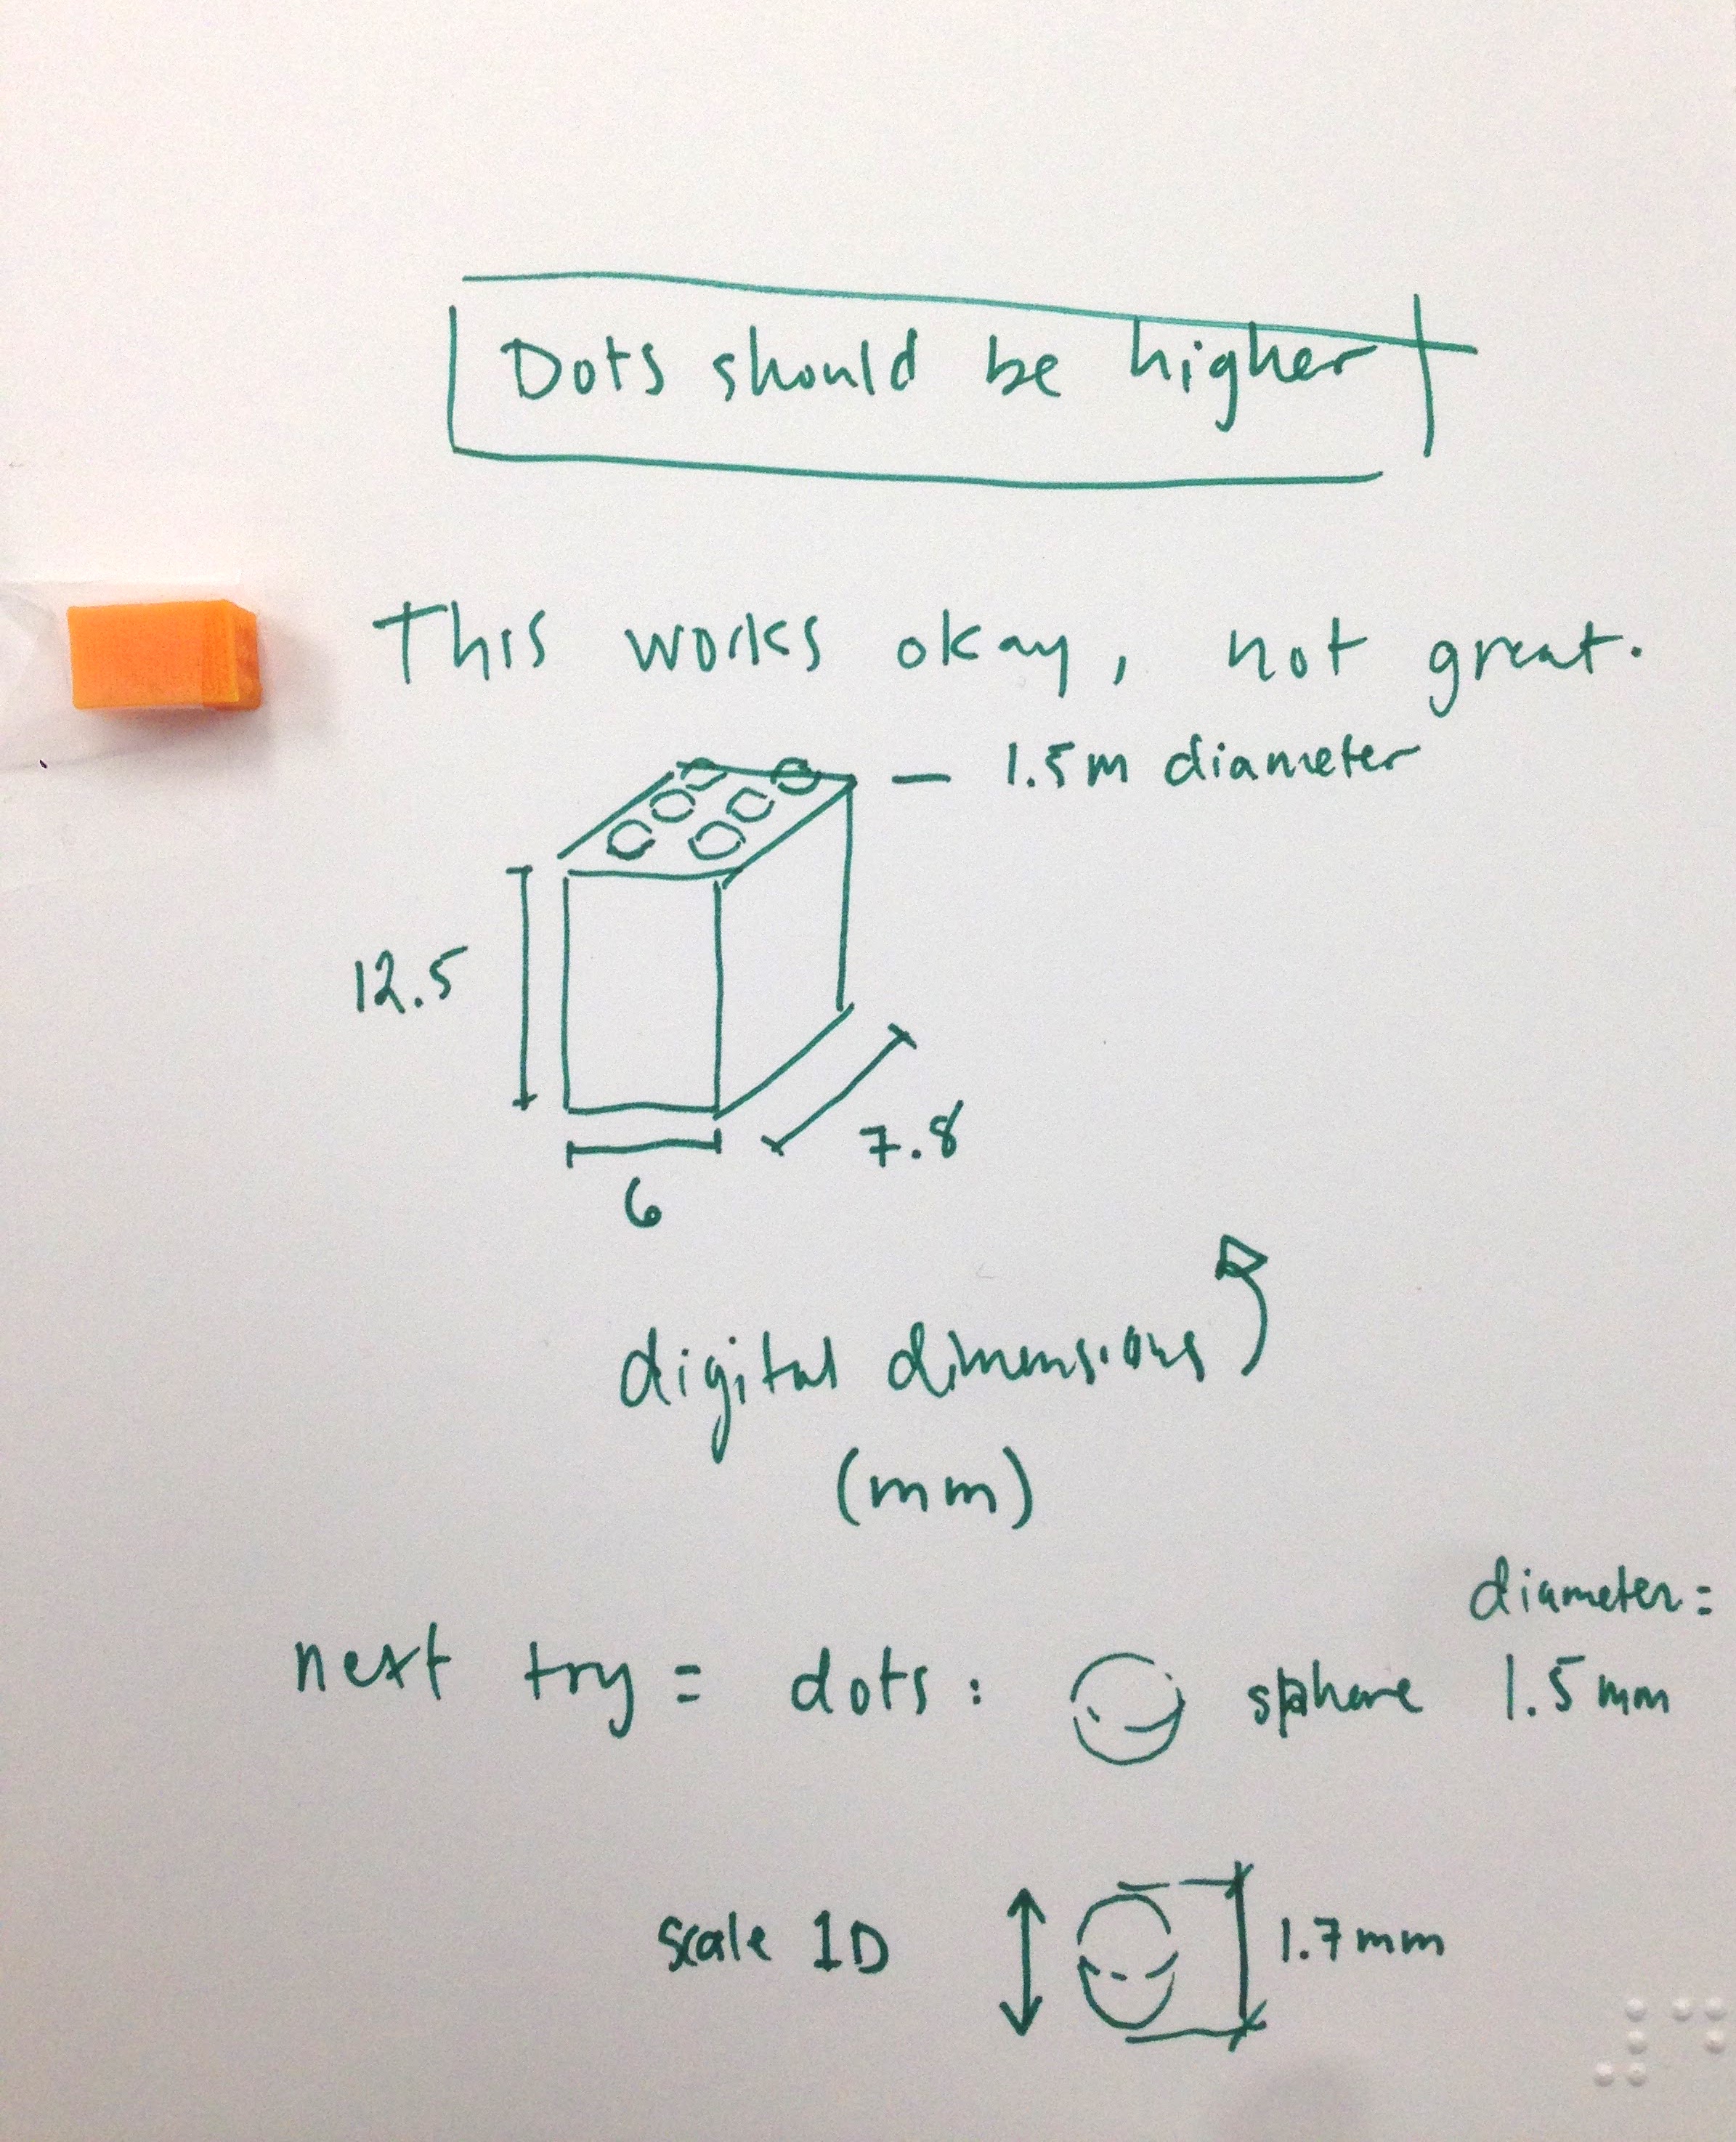 Dots should be higher
This works okay, not great.
1.5m diameter
12.5
7.8
6
digital dimensions
(mm)
diameter =
next try = dots : sphere 1.5mm
scale 1D 1.7mm